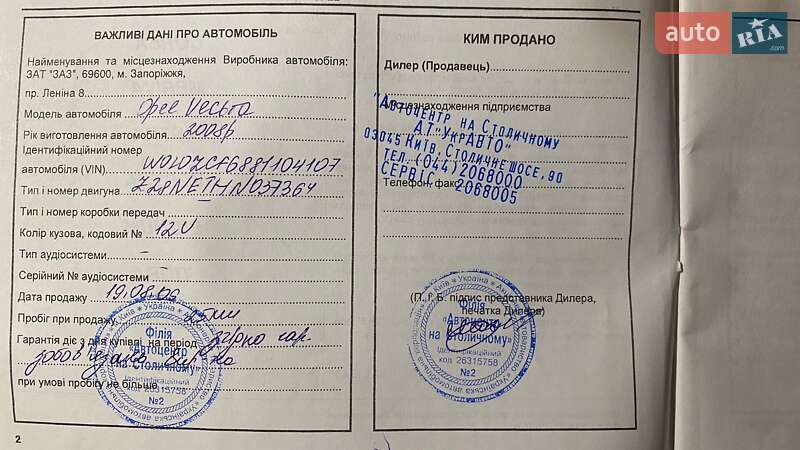 ВАЖЛИВІ ДАНІ ПРО АВТОМОБІЛЬ
Найменування та місцезнаходження Виробника автомобіля:
ЗАТ "ЗАЗ", 69600, м. Запоріжжя,
пр. Леніна 8
Модель автомобіля Opel Vectra
Рік виготовлення автомобіля 2008р
Ідентифікаційний номер
автомобіля (VIN)
Тип і номер двигуна
Тип і номер коробки передач
Колір кузова, кодовий № 12U
Тип аудіосистеми –
Серійний № аудіосистеми –
Дата продажу 19.08.09
Пробіг при продажу
Гарантія діє з дня купівлі на період згідно гар.
при умові пробігу не більше
Філія
"Автоцентр
на Столичному"
Ідентифікаційний
код 26315758
№2
2
КИМ ПРОДАНО
Дилер (Продавець)
Місцезнаходження підприємства
"АВТОЦЕНТР НА СТОЛИЧНОМУ
АТ"УКРАВТО"
03045 КИЇВ, СТОЛИЧНЕ ШОСЕ, 90
ТЕЛ. (044) 2068000
СЕРВІС 2068005
Телефон, факс
(П. І. Б. підпис представника Дилера,
печатка Дилера)
Філія
"Автоцентр
на Столичному"
Ідентифікаційний
код 26315758
№2
auto RIA.com